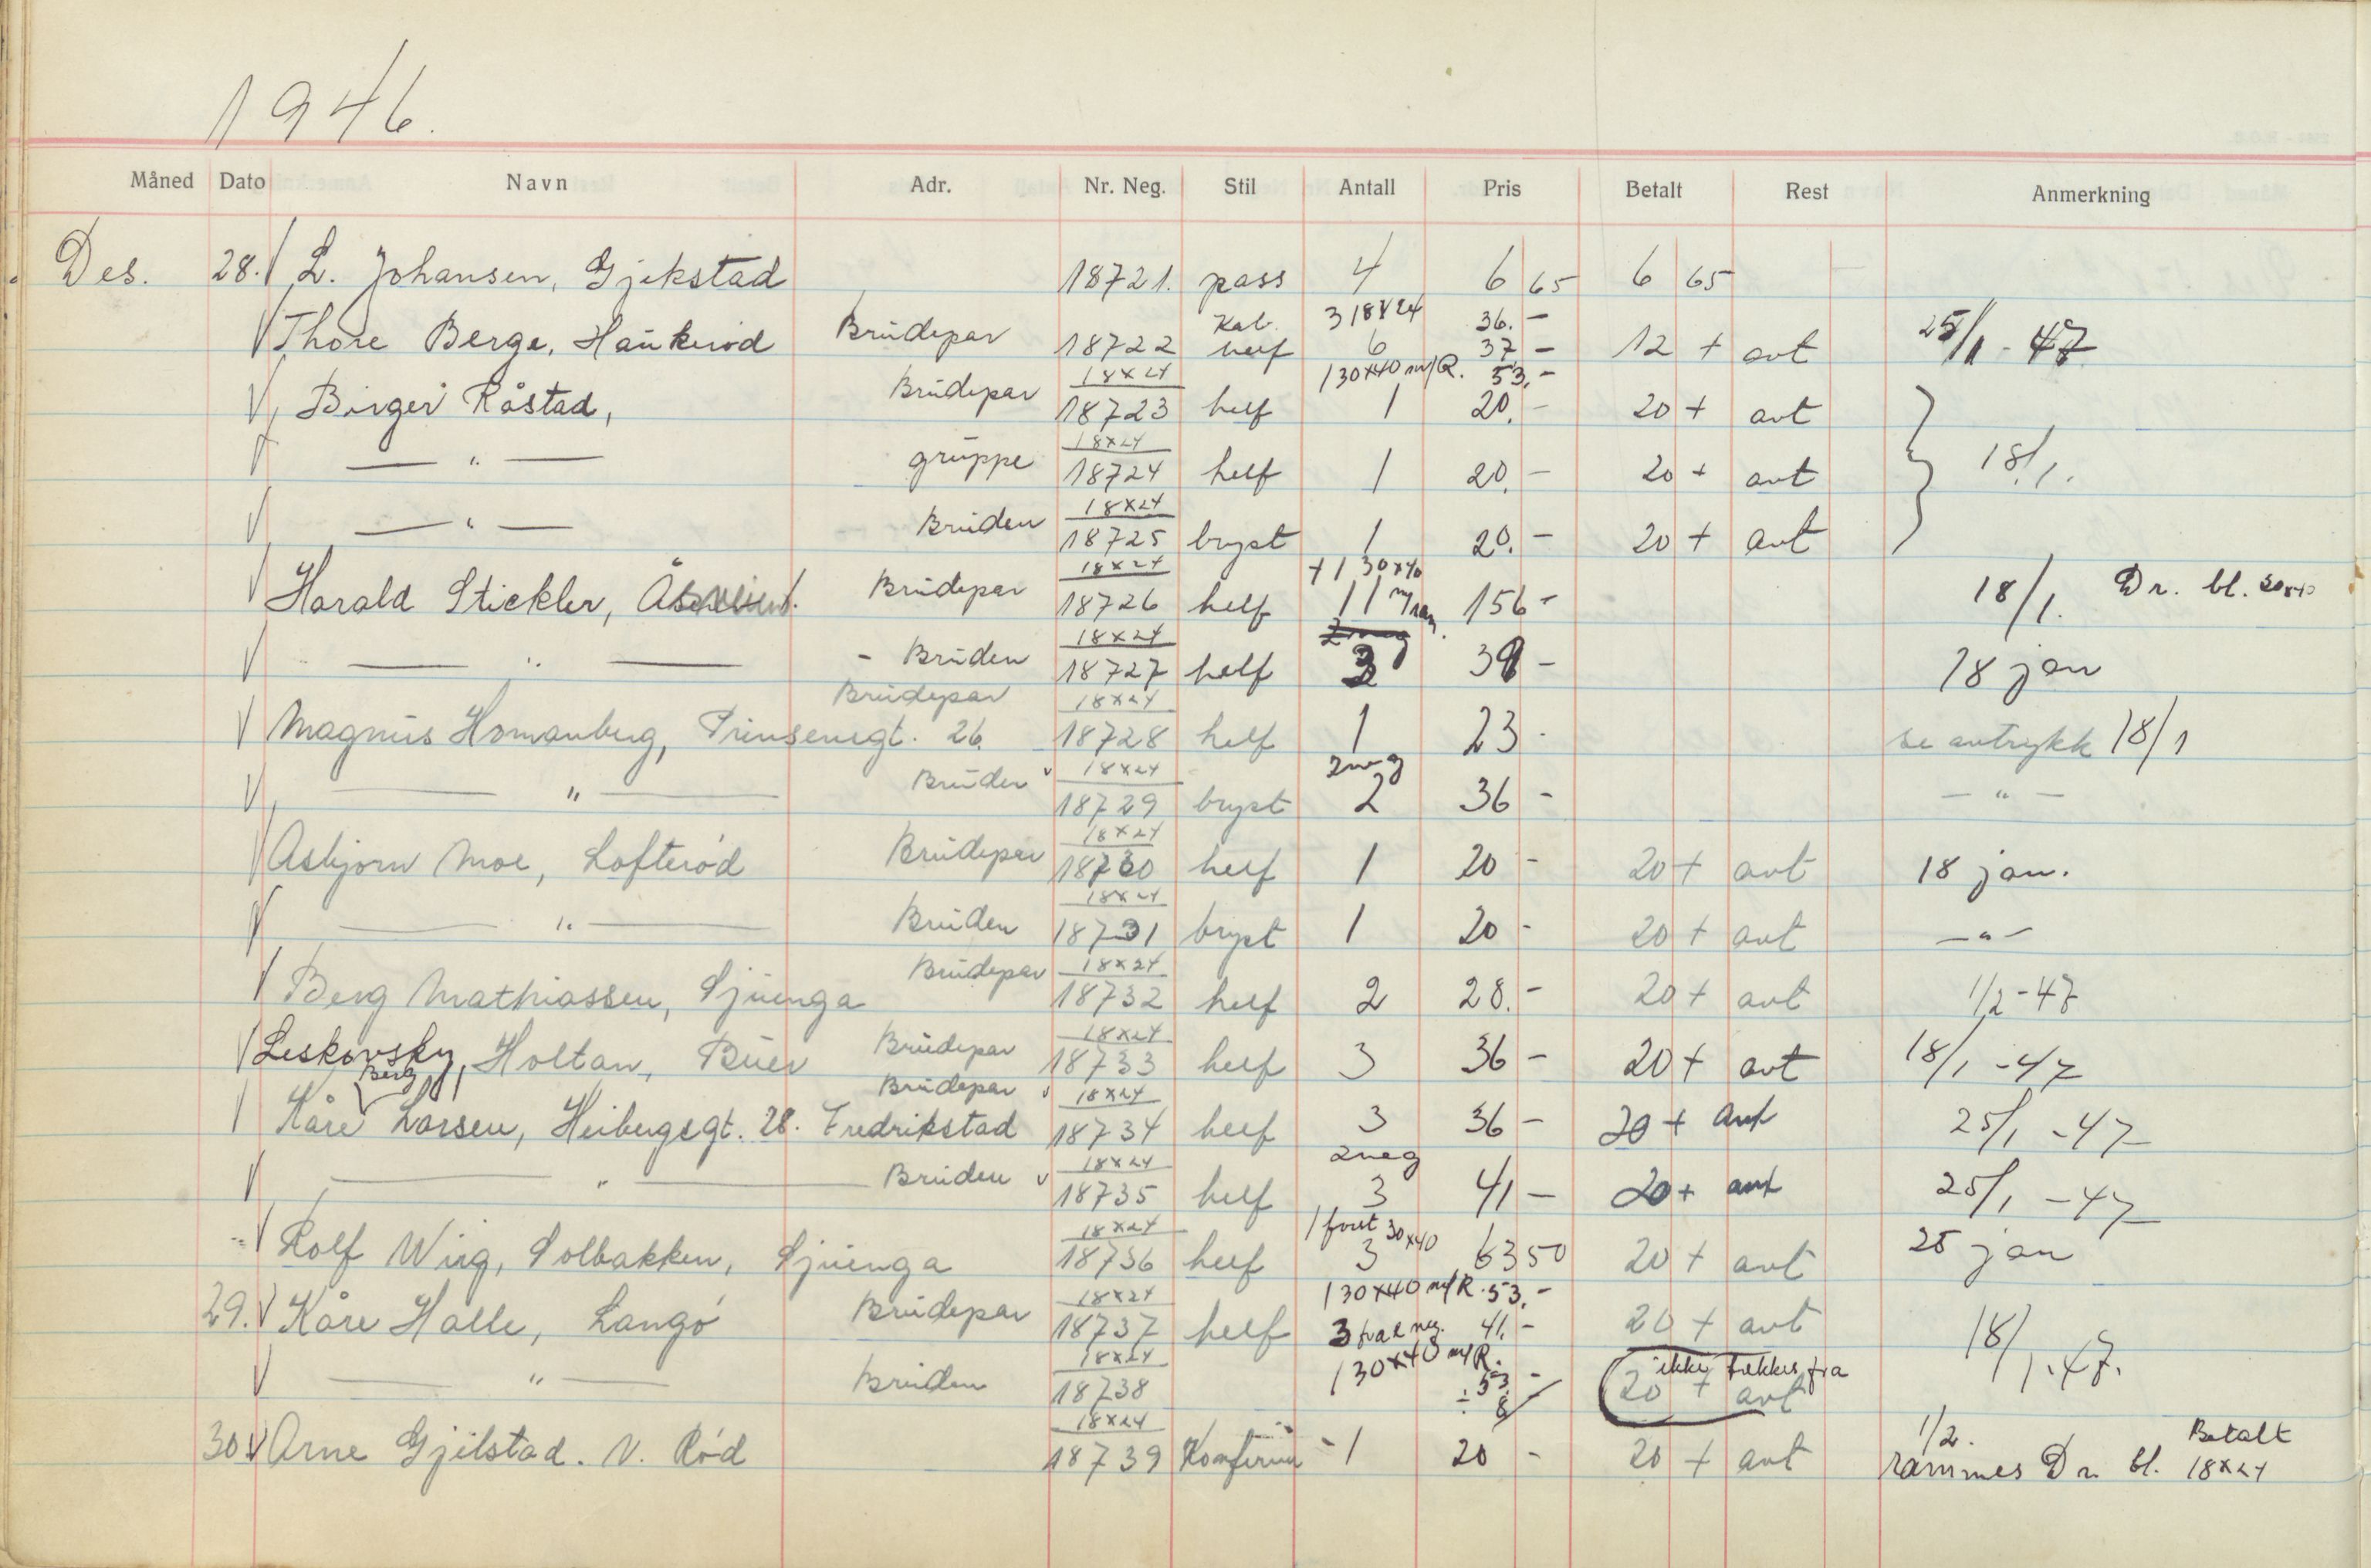 1946.
Måned Dato Navn Adr. Nr. Neg. Stil Antall Pris Betalt Rest Anmerkning
Des. 28. L. Johansen, Gjekstad 18721. pass 4 6 65 6 65
Kab. 3 18x24 36.-
Thore Berge, Haukerød Brudepar 18722 helf 6 37,- 12 + avt 25/1 - 47
18x24 1 30x40 m/R. 53.-
Birger Råstad, Brudepar 18723 helf 1 20.- 20 + avt
18x24
— " — gruppe 18724 helf 1 20.- 20 + avt 18/1.
18x24
— " — Bruden 18725 bryst 1 20.- 20 + avt
18x24 + 1 30x40
Harald Stickler, Brudepar 18726 helf 11 m/ram. 156- 18/1. Dr. bl. 30x40
18x24 2 neg
— " — - Bruden 18727 helf 3 39 - 18 jan
Brudepar 18x24
Magnus Homanberg, Prinsensgt. 26. 18728 helf 1 23- se avtrykk 18/1
18x24 2neg
— " — Bruden 18729 bryst 2 36- — " —
18x24
Asbjørn Moe, Lofterød Brudepar 18730 helf 1 20- 20 + avt 18 jan.
18x24
— " — Bruden 18731 bryst 1 20- 20 + avt — " —
Brudepar 18x24
Berg Mathiassen, Tjuenga 18732 helf 2 28.- 20 + avt 1/2 - 47
18x24
Leskovsky, Holtan, Buer Brudepar 18733 helf 3 36- 20 + avt 18/1 - 47
Berg Brudepar 18x24
Kåre Larsen, Heibergsgt. 28. Fredrikstad 18734 helf 3 36- 20 + avt 25/1 - 47
18x24 2neg
— " — Bruden 18735 helf 3 41- 20 + avt 25/1 - 47
18x24 1 forst 30x40
Rolf Wiig, Solbakken, Tjuenga 18736 helf 3 63 50 20 + avt 25 jan
18x24 1 30x40 m/R. 53.-
29. Kåre Halle, Langø Brudepar 18737 helf 3 fra 2 neg. 41.- 20 + avt 18/1.47.
18x24 1 30x40 m/R. ikke trekkes fra
— " — Bruden 18738 53.- 20 + avt
÷ 8
18x24 1/2. Betalt
30. Arne Gjelstad. N. Rød 18739 Konfirm - 1 20 - 20 + avt rammes Dr. bl. 18x24